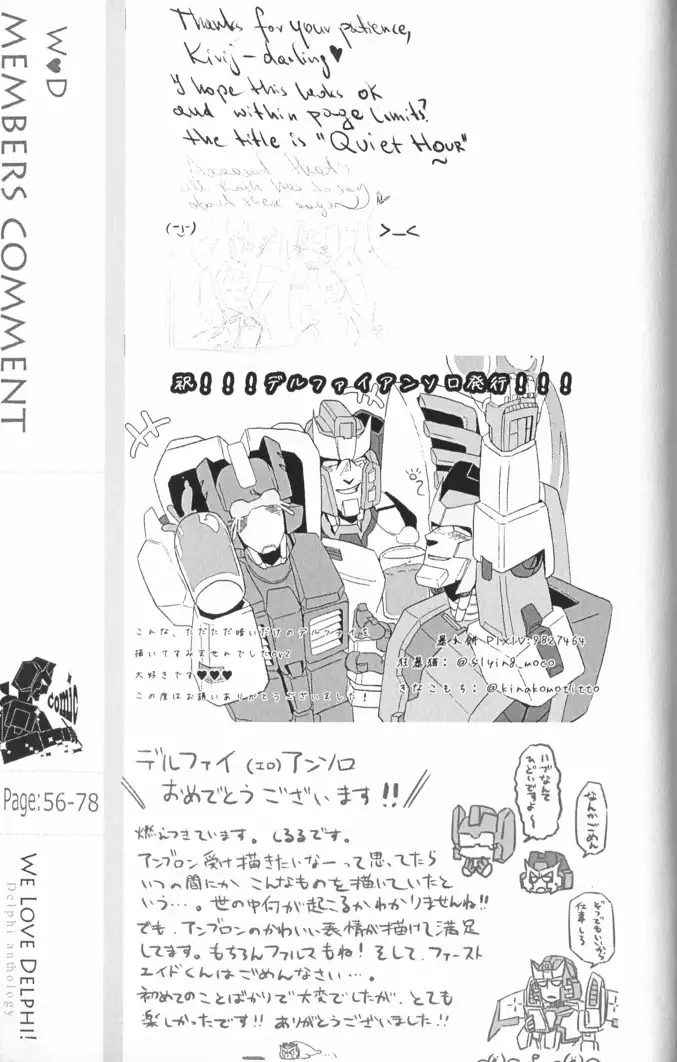 W♥D
MEMBERS COMMENT
Thanks for your patience,
Kirij-darling♥
I hope this looks ok
and within page limits?
the title is "Quiet Hour"
(-_-)
>_<
祝!!!デルファイアンソロ発行!!!
こんな、ただただ暗いだけのデルファイを
描いてすみませんでしたorz
大好きです♥♥♥
この度はお誘いありがとうございました!
PIXIV:9827464
: @flying_moco
きなこもち: @kinakomotitto
comic
Page:56-78
WE LOVE DELPHI!
Delphi anthology
デルファイ(エロ)アンソロ
おめでとうございます!!
燃えつきています。しるるです。
アンブロン受け描きたいなーって思ってたら
いつの間にかこんなものを描いていたと
いう…。世の中何が起こるかわかりませんね!!
でも、アンブロンのかわいい表情が描けて満足
してます。もちろんファルマもね!そして、ファースト
エイドくんはごめんなさい…。
初めてのことばかりで大変でしたが、とても
楽しかったです!!ありがとうございました!!
ハブなんて
ひどいですよ〜
なんかごめん
どうでもいいから
仕事しろ